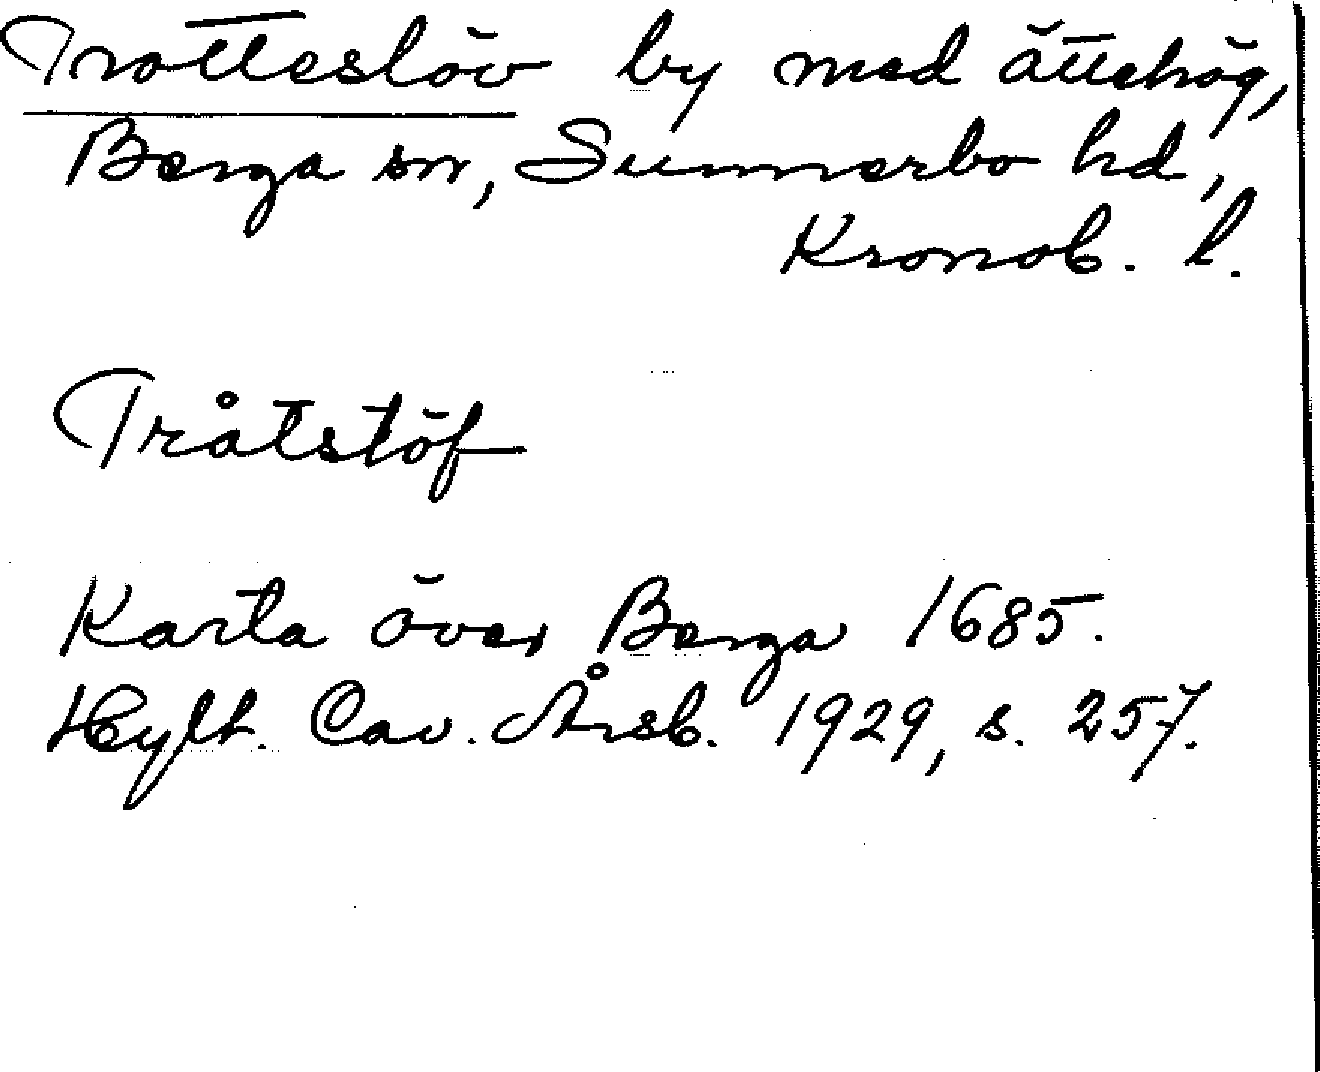 Trotteslöv by med ättehög,
Berga sn, Sunnerbo hd,
Kronob. l.
Tråtstöf
Karta över Berga 1685.
Hylt. Cav. Årsb. 1929, s. 257.